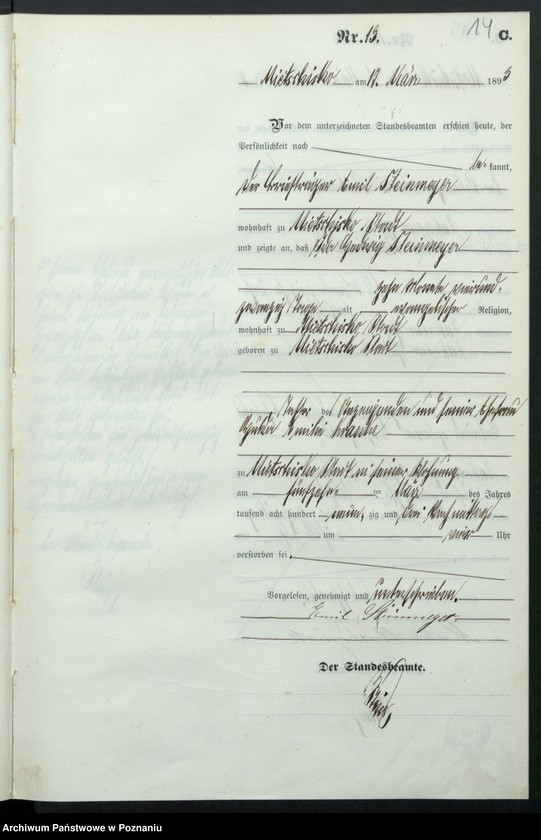 14
Nr. 13. C.
Mietschisko am 17. März 1893
Vor dem unterzeichneten Standesbeamten erschien heute, der
Persönlichkeit nach
be kannt,
der Briefträger Emil Steinmeyer
wohnhaft zu Mietschisko Stadt
und zeigte an, daß Hedwig Steinmeyer
zehn Monate vierund-
zwanzig Tage alt, evangelischer Religion,
wohnhaft zu Mietschisko Stadt
geboren zu Mietschisko Stadt
Tochter des Anzeigenden und seiner Ehefrau
Emilie
zu Mietschisko Stadt in seiner Wohnung
am fünfzehn ten März des Jahres
tausend acht hundert neun zig und drei Nachmittags
um vier Uhr
verstorben sei.
Vorgelesen, genehmigt und unterschrieben.
Emil Steinmeyer
Der Standesbeamte.
Archiwum Państwowe w Poznaniu